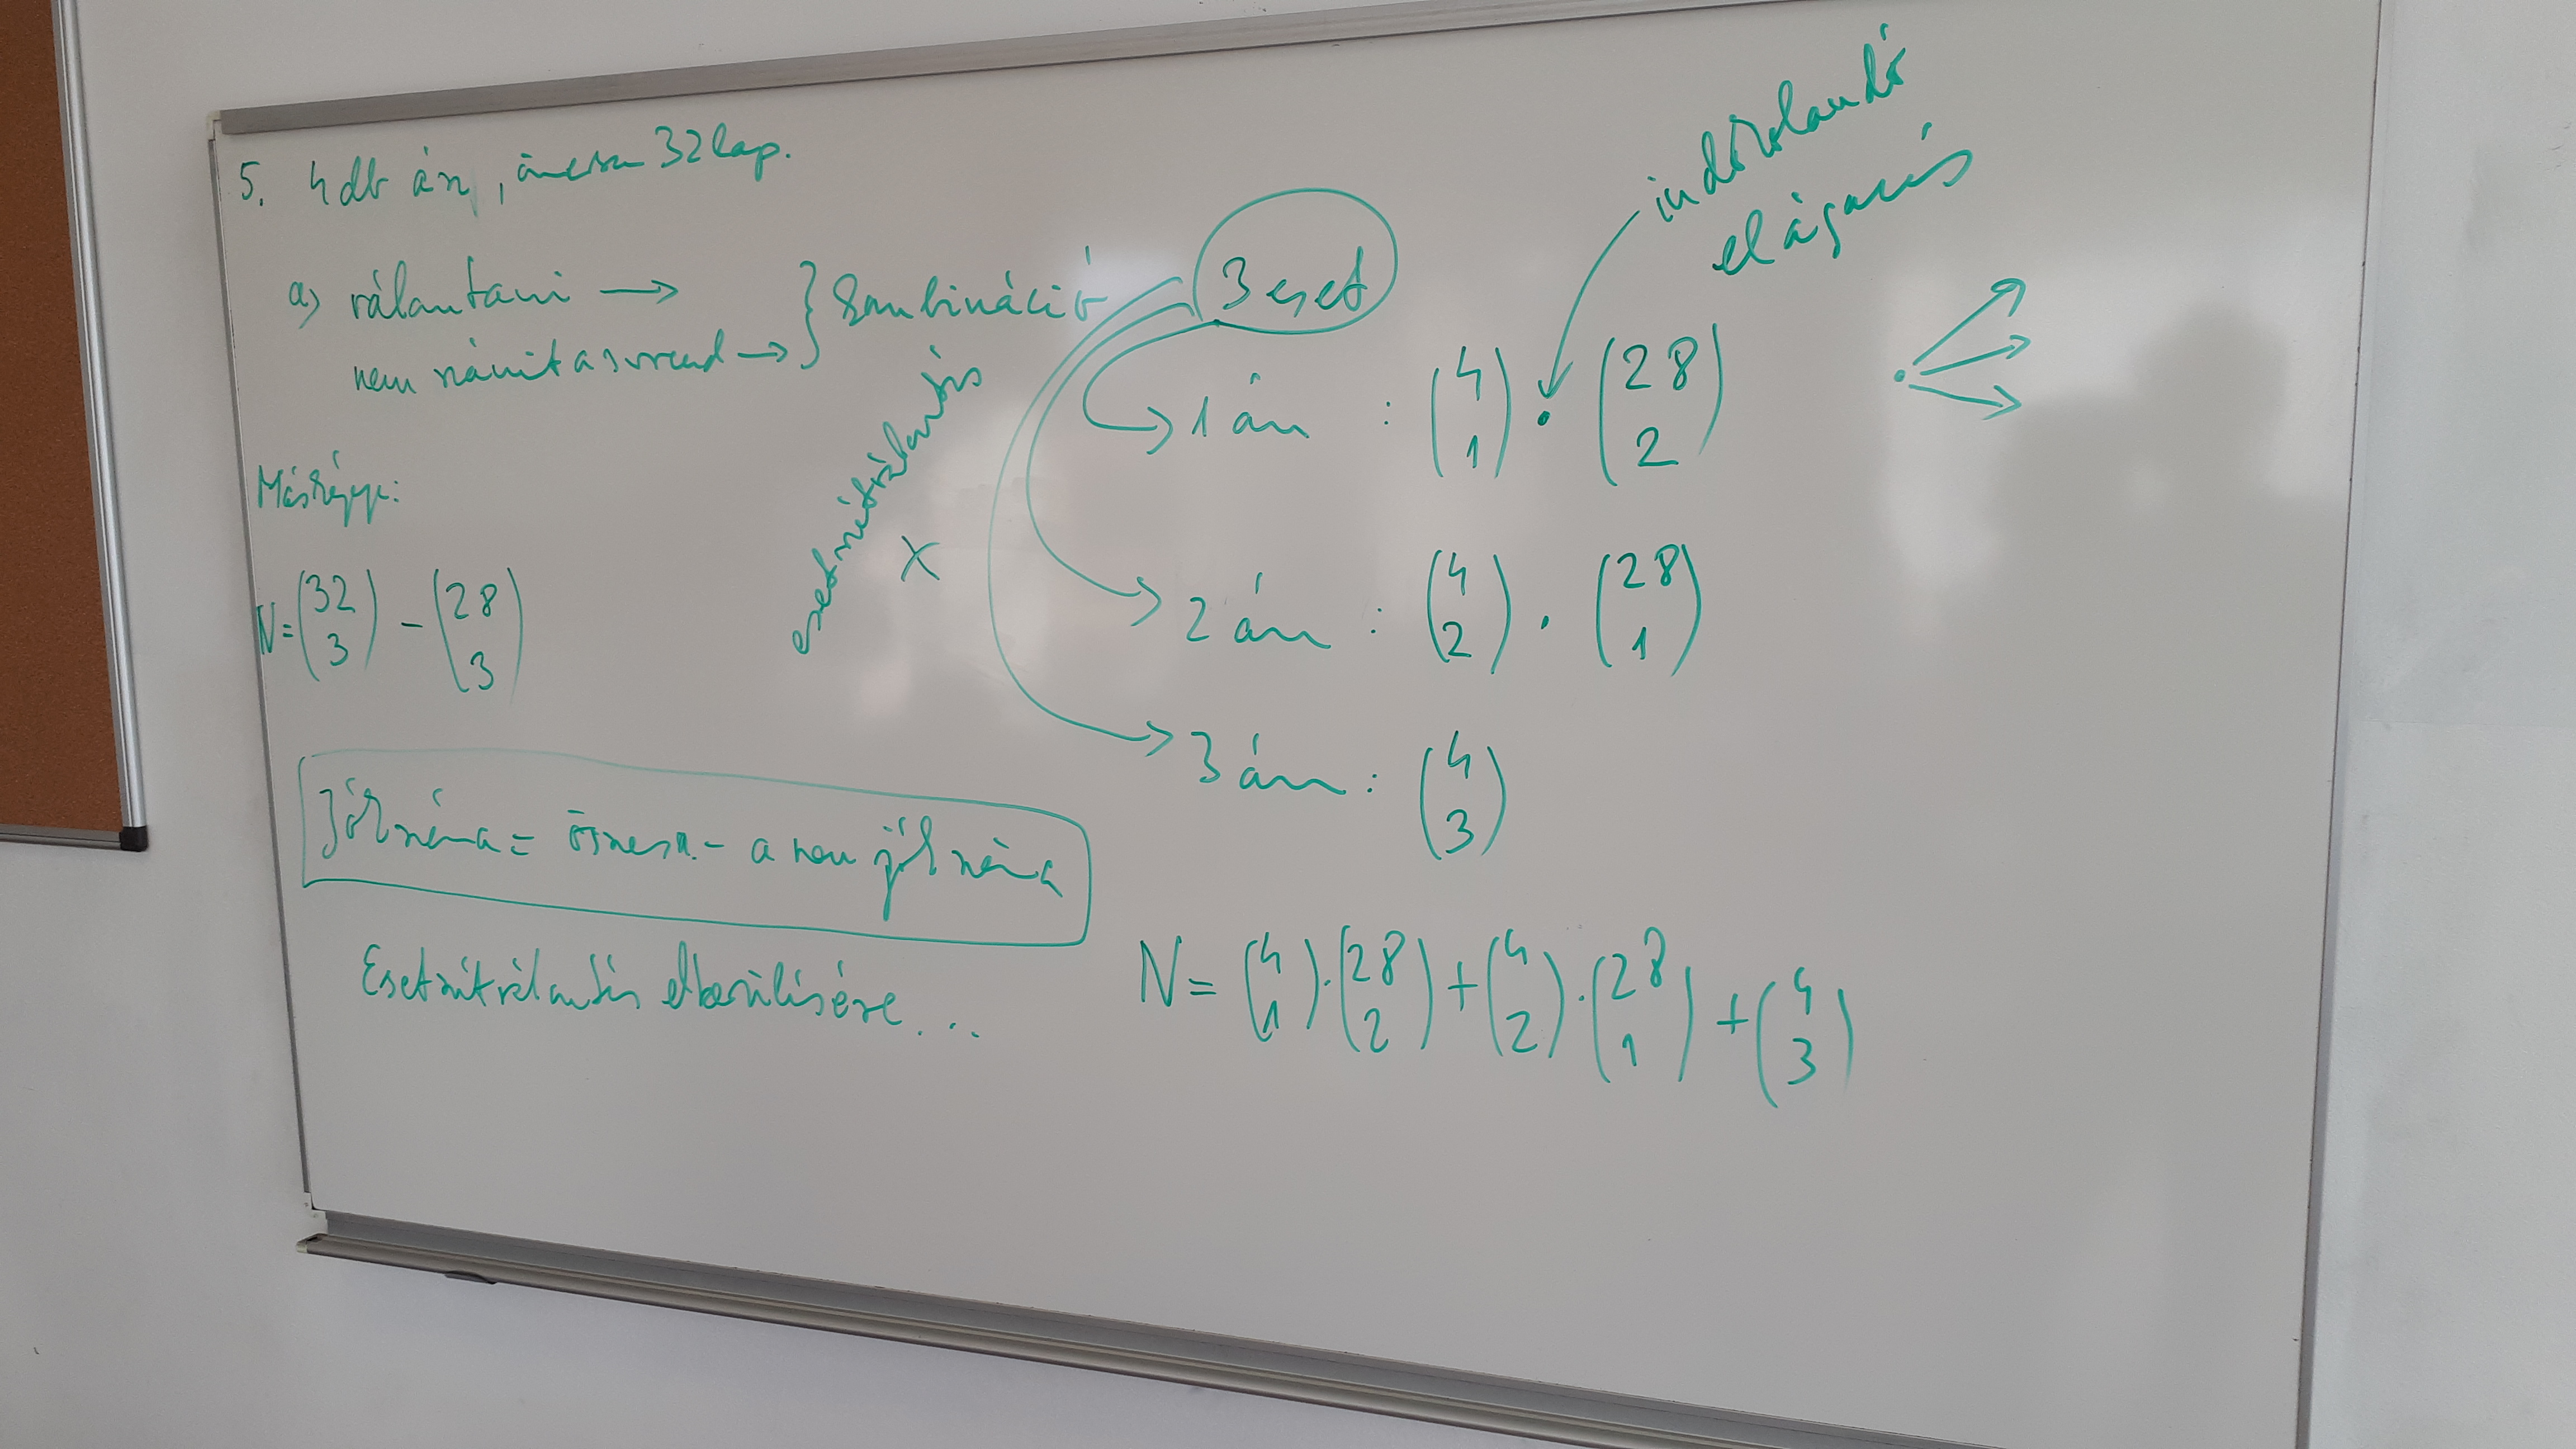 5. 4 db ász, összesen 32 lap.
a) választani →
nem számít a sorrend →
} Kombináció
Másképp:
N = (32 3) - (28 3)
Jók száma = összes - a nem jók száma
Esetszétválasztás elkerülésére...
esetszétválasztás
X
3 eset
indokolandó
elágazás
1 ász : (4 1) · (28 2)
2 ász : (4 2) · (28 1)
3 ász : (4 3)
N = (4 1) · (28 2) + (4 2) · (28 1) + (4 3)